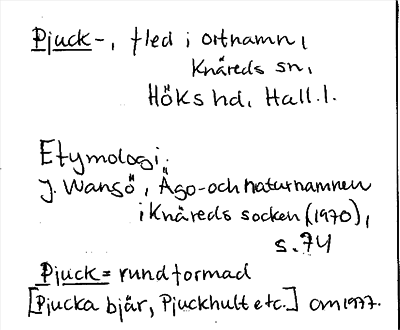 Pjuck-, fled i ortnamn,
Knäreds sn,
Höks hd, Hall.l.
Etymologi:
J. Wansö, Ägo- och naturnamnen
i Knäreds socken (1970),
s. 74
Pjuck = rundformad
[Pjucka bjär, Pjuckhult etc.] OM 1977.